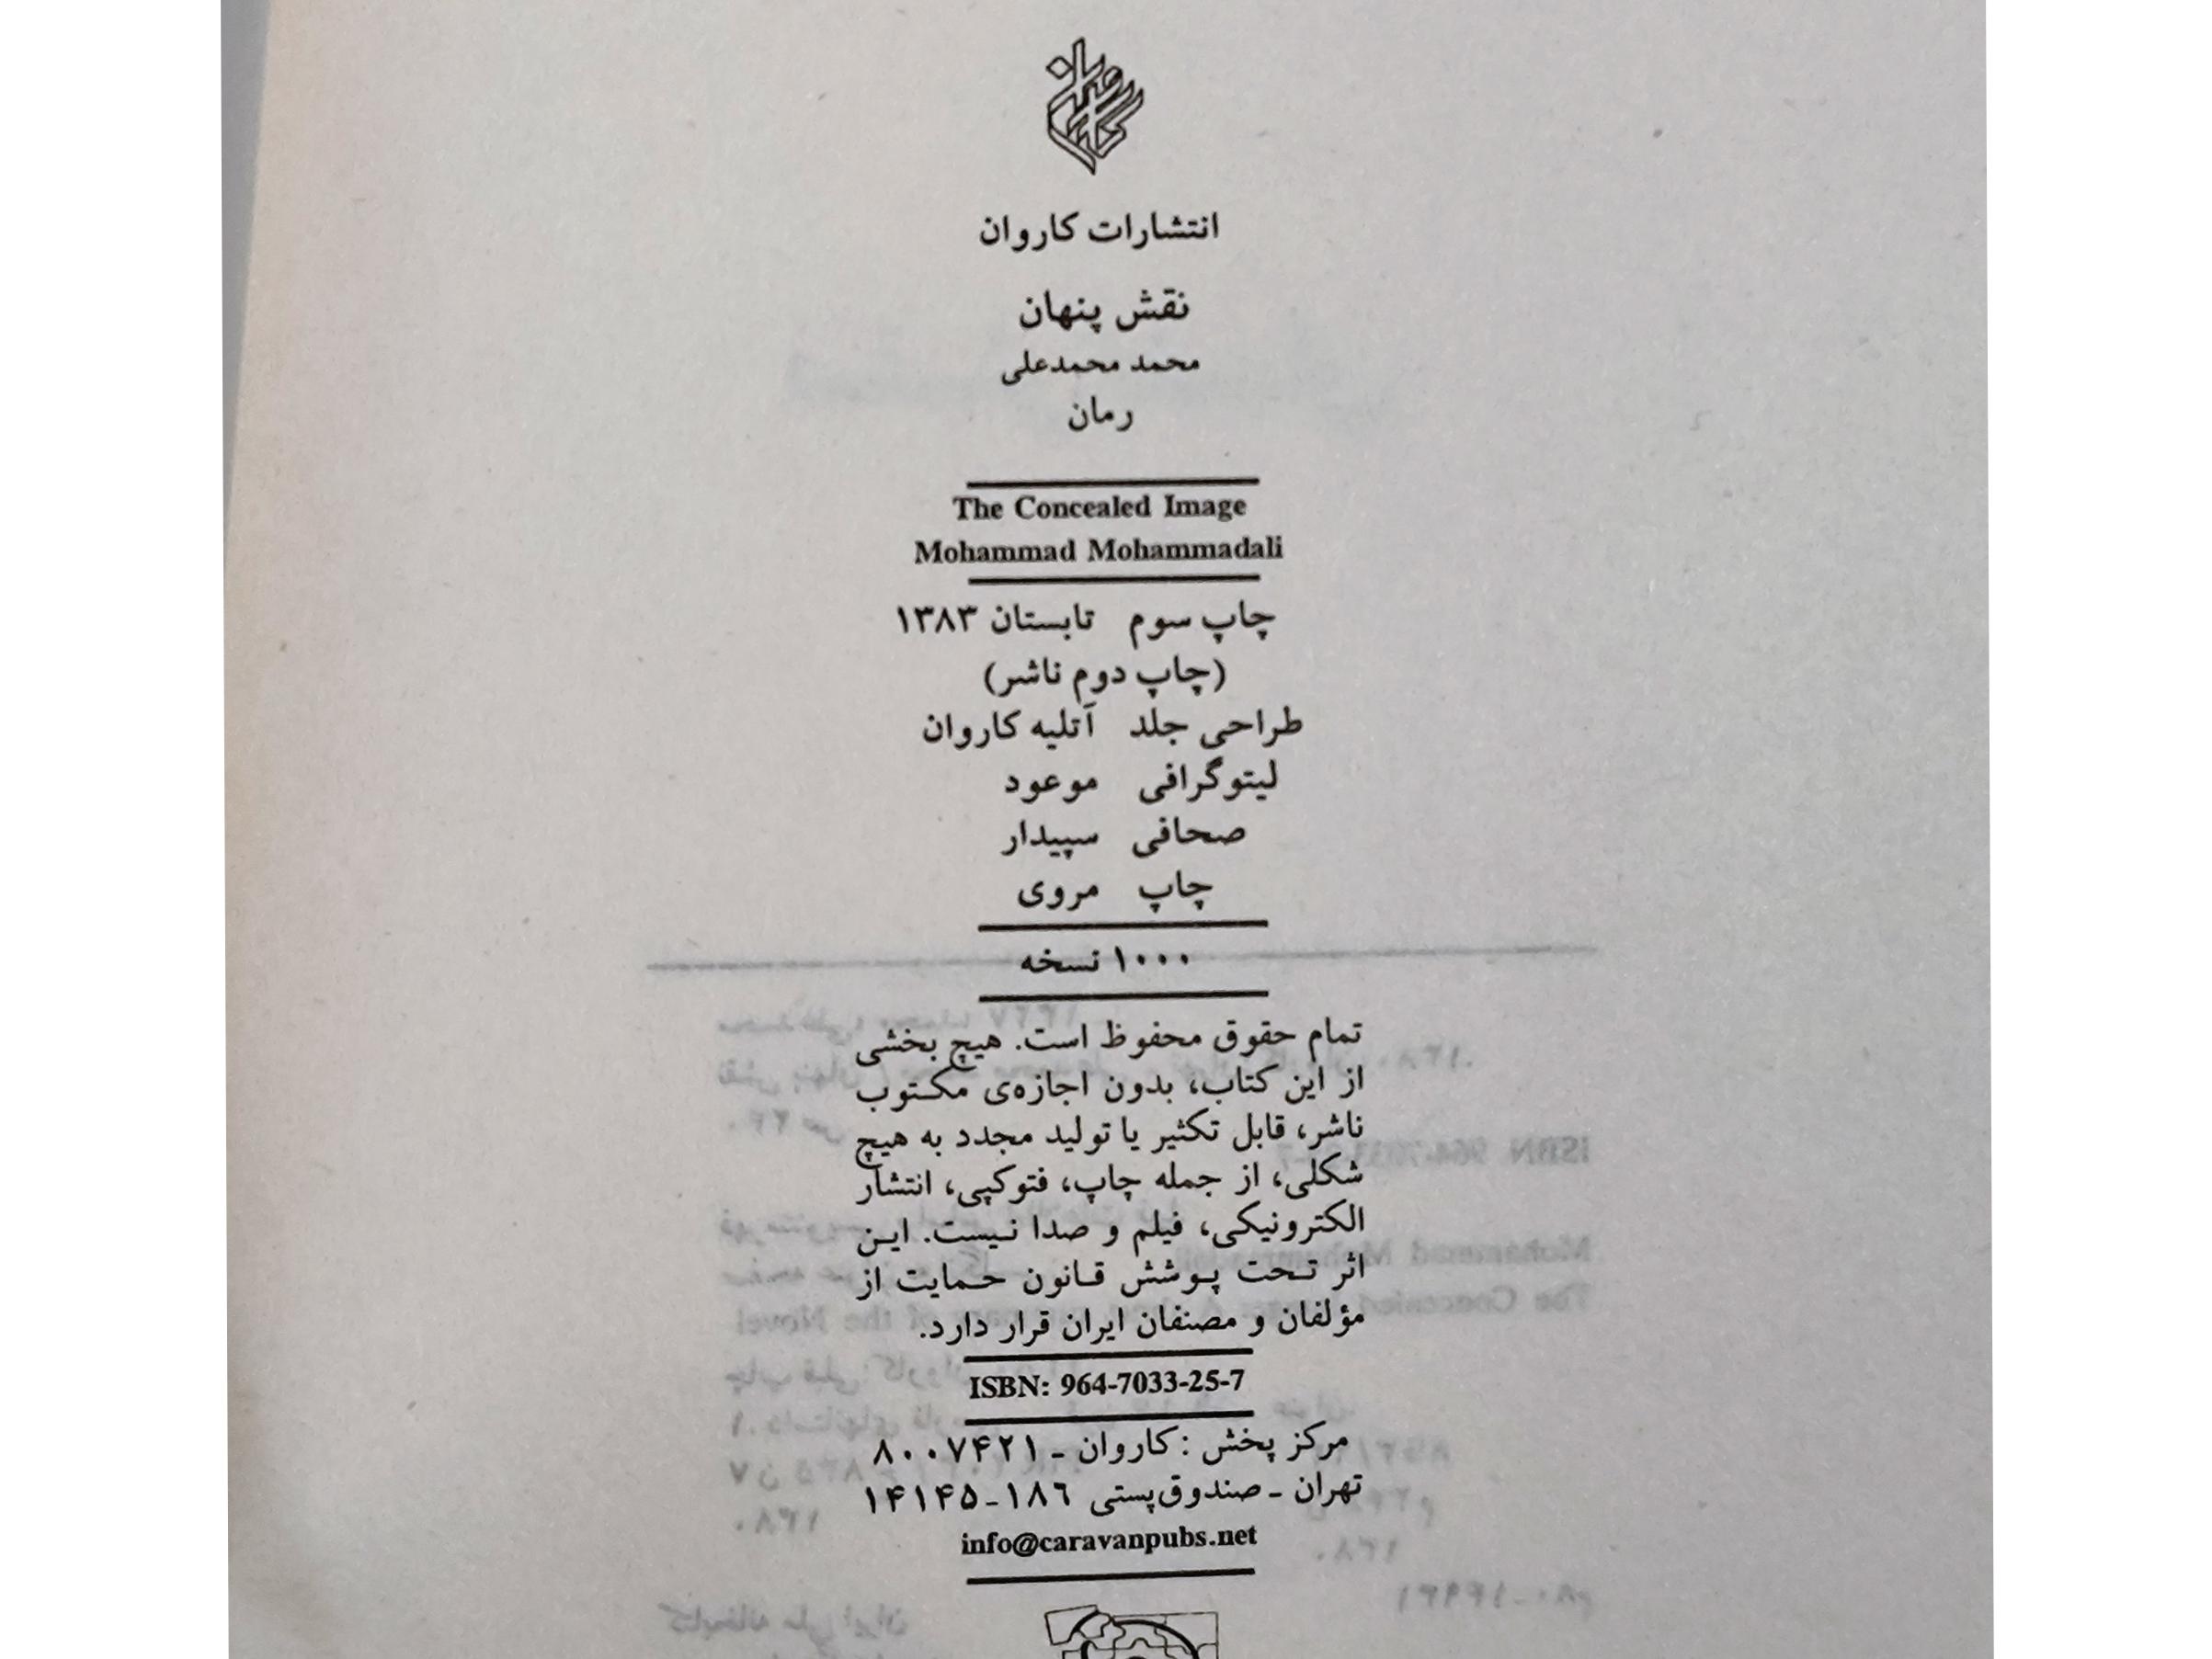 کاروان
انتشارات کاروان
نقش پنهان
محمد محمدعلی
رمان
The Concealed Image
Mohammad Mohammadali
چاپ سوم تابستان ۱۳۸۳
(چاپ دوم ناشر)
طراحی جلد آتلیه کاروان
لیتوگرافی موعود
صحافی سپیدار
چاپ مروی
۱۰۰۰ نسخه
تمام حقوق محفوظ است. هیچ بخشی
از این کتاب، بدون اجازه‌ی مکتوب
ناشر، قابل تکثیر یا تولید مجدد به هیچ
شکلی، از جمله چاپ، فتوکپی، انتشار
الکترونیکی، فیلم و صدا نیست. این
اثر تحت پوشش قانون حمایت از
مؤلفان و مصنفان ایران قرار دارد.
ISBN: 964-7033-25-7
مرکز پخش : کاروان ـ ۸۰۰۷۴۲۱
تهران ـ صندوق‌پستی ۱۸۶-۱۴۱۴۵
info@caravanpubs.net